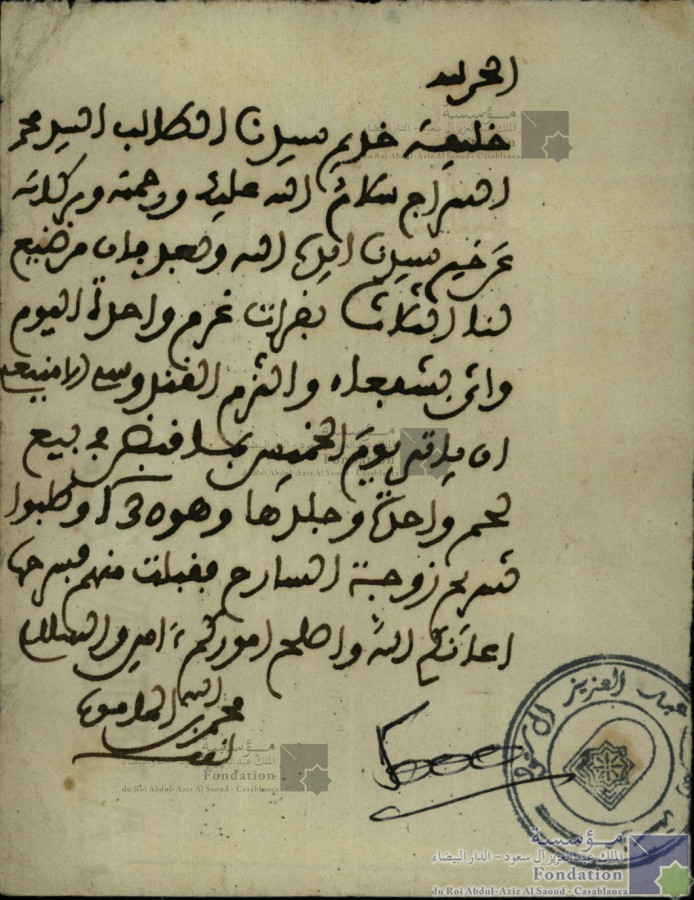 الحمد لله
خليفة خديم سيدنا الطالب السيد محمد
السراج سلام الله عليك ورحمة وبركاته
عن خير سيدنا ايده الله وبعد فان من ضيع
لنا الثلاث بفرات غرم واحدة اليوم
واتى بشبعاء والتزم
ان ياتي يوم الخميس بما قبض في بيع
لحم واحدة وجلدها وهو 30 وطلبوا
تسريح زوجة السارح فقبلت منهم فسرحها
اعانكم الله واصلح اموركم ءامين والسلام
محمد بن
لطف الله
5000
عبد العزيز آل سعود
مؤسسة
الملك عبد العزيز آل سعود - الدار البيضاء
Fondation
du Roi Abdul-Aziz Al Saoud - Casablanca